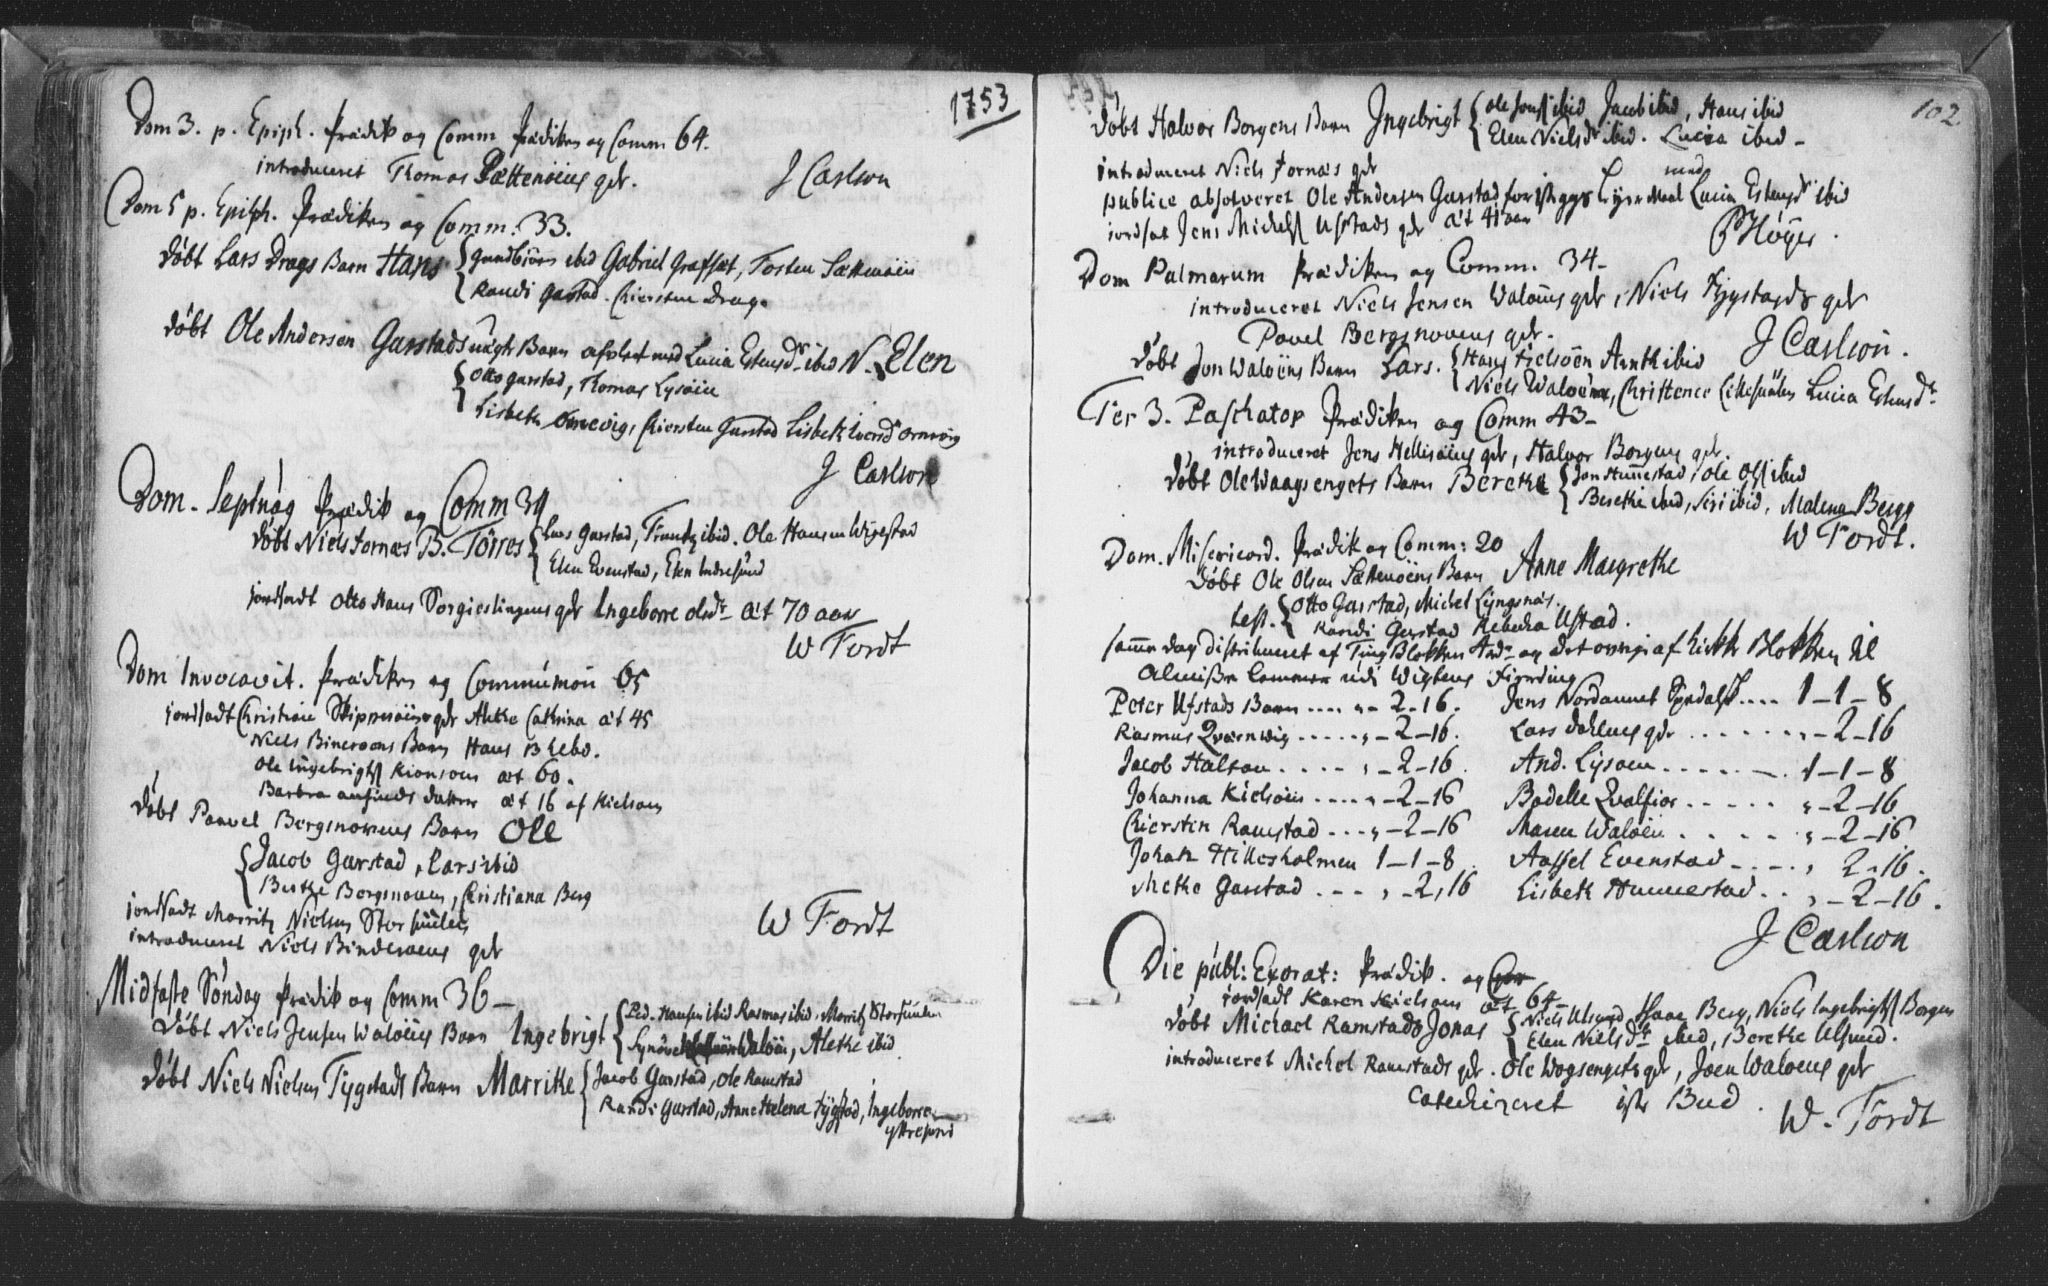 1753
Dom 3. p. Epiph. Prædik og Comm Prædiken og Comm 64.
introduceret Thomas Sættenøiens qdr.
J Carlson
Dom 5 p. Epiph. Prædiken og Comm. 33.
døbt Lars Drags Barn Hans { Gundbiørn ibid Gabriel Grafset, Torsten Sættenøien
Randi Garstad. Kiersten Drag.
døbt Ole Andersen Garstads uægt Barn aflet med Lucia Estensdr ibid N. Elen
{ Otto Garstad, Thomas Lysøien
Lisbeth Ornevig, Kiersten Garstad Lisbeth Ornevig
J Carlson
Dom. Septuag Prædik og Comm 34
døbt Niels Fornæs B. Törres { Lars Garstad, Frantz ibid. Ole Hansen Wigestad
Elen Evenstad, Elen Indresund
jordsadt Otto Hans Sorgieslingens qdr Ingeborre Olsdr æt 70 aar
W Tordt
Dom Invocavit. Prædiken og Communion 65
jordsadt Christian Skippernøiens qdr Alethe Cathrina æt 45
Niels Binerøens Barn Hans
Ole Ingebrigts Kionsøen æt 60.
Barbra æt 16 af Kielsøen
døbt Paavel Bergsnovens Barn Ole
{ Jacob Garstad, Lars ibid
Berthe Bergsnoven, Christiana Berg
jordsadt Morritz Nielsen
introduceret Niels Binderøens qdr
W Tordt
Midfaste Søndag Prædik og Comm 36 –
døbt Niels Jensen Waløens Barn Ingebrigt { Ped. Hansen ibid Rasmus ibid, Morritz
Synøve Waløen, Alethe ibid
døbt Niels Nielsen Fygstads Barn Marrithe { Jacob Garstad, Ole Ramstad
Randi Garstad, Anne Helena Fygstad, Ingeborre
102
døbt Halvor Borgens Barn Ingebrigt { Ole ibid Jacob ibid, Hans ibid
Elen Nielsdr ibid. Lucia ibid –
introduceret Niels Fornæs qdr
med
publice absolveret Ole Andersen Garstad for Leyermaal Lucia Estensdr ibid
jordsat Jens Michels Ufstads qdr æt 41 aar
P Høyer.
Dom Palmarum Prædiken og Comm. 34 –
introduceret Niels Jensen Waløens qdr, Niels Fygstads qdr
Pavel Bergsnovens qdr.
J Carlson.
døbt Jon Waløens Barn Lars. { Hans Kielsøen Arnt ibid
Niels Waløen, Christence Lucia Estensdr
Fer 3. Paschatos Prædiken og Comm 43 –
introduceret Jens Hellisøiens qdr, Halvor Borgens qdr.
døbt Ole Waagsengets Barn Berethe { Jon Hunnestad, Ole Ols ibid
Berethe ibid, Siri ibid, Malena Berg
W Tordt.
Dom. Misericord. Prædik og Comm: 20
døbt Ole Olsen Sættenøens Barn Anne Margrethe
test. { Otto Garstad, Michel Lyngsnæs
Randi Garstad Rebecka Ufstad.
samme dag distribueret af Ting Blokken og det øvrige af Kirke Blokken til
Almisse Lemmer udi Wigtens Fierding
Peter Ufstads Barn .... „ – 2 – 16. Jens Nordanvet .... 1 – 1 – 8
Rasmus Qværnwig ..... „ – 2 – 16. Lars Dahlens qdr ....... „ – 2 – 16
Jacob Halsan ..... „ – 2 – 16. And. Lysøen ...... 1 – 1 – 8
Johanna Kielsøen .... „ – 2 – 16 Bodelle Qvalfior ...... „ – 2 – 16
Kierstin Ramstad ... „ – 2 – 16 Maren Waløen ...... „ – 2 – 16
Johan Hillesholmen 1 – 1 – 8. Aassel Evenstad ..... „ 2 – 16.
Methe Garstad .... „ – 2, 16 Lisbeth Hunnestad ... „ – 2 – 16.
J Carlson
Die publ: Exorat: Prædik. og
jordsadt Karen Kielsøens æt 64 –
døbt Michael Ramstads Jonas { Niels Ulsund Isaac Berg, Niels Ingebrigts Borgen
Elen Nielsdr ibid, Berethe Ulsund.
introduceret Michel Ramstads qdr. Ole Wogsengets qdr, Joen Waløens qdr
Catechizeret 1ste Bud.
W. Tordt